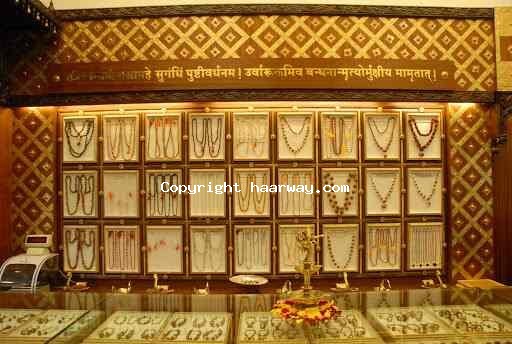 सुगंधिं पुष्टीवर्धनम! उर्वारुकमिव बन्धनान्मृत्योर्मुक्षीय मामृतात्!
Copyright haarway.com